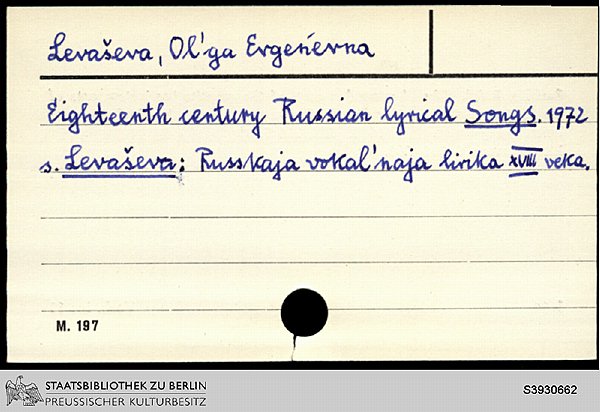 Levaševa, Ol'ga Evgeńevna
Eighteenth century Russian lyrical Songs. 1972
s. Levaševa: Russkaja vokal'naja lirika XVIII veka.
M. 197
STAATSBIBLIOTHEK ZU BERLIN
PREUSSISCHER KULTURBESITZ
S3930662